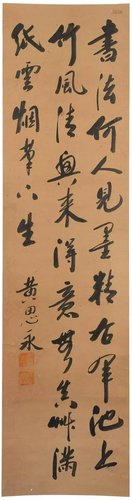 書法何人見墨精右軍池上
竹風清興來得意無真艸滿
紙雲烟筆下生
黃思永